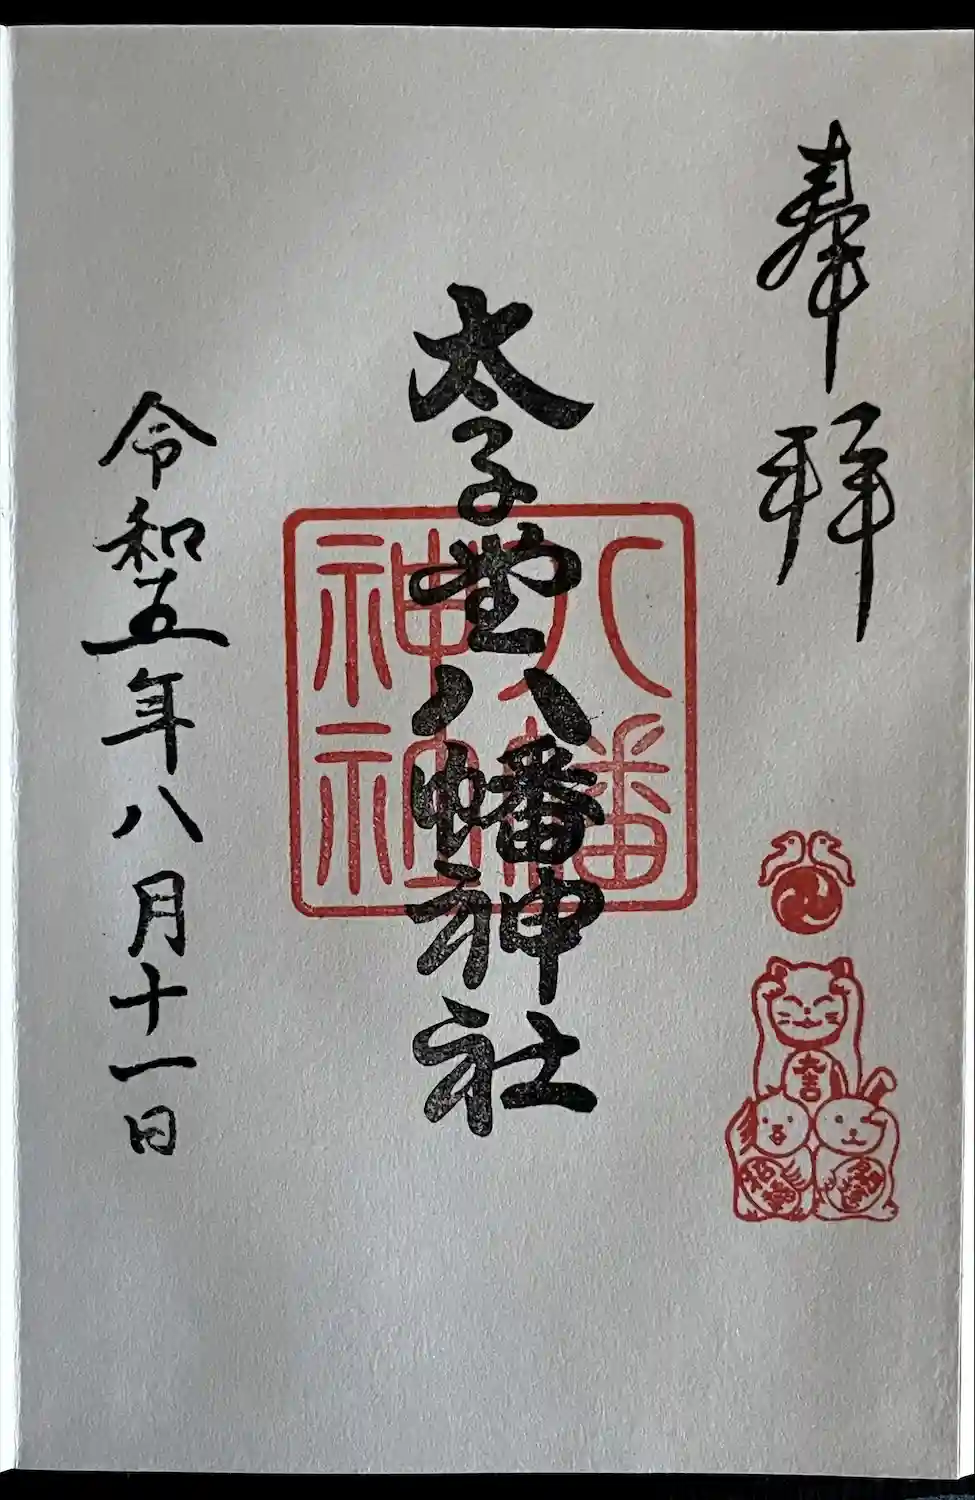 奉拝
太子堂八幡神社
八幡
神社
令和五年八月十一日